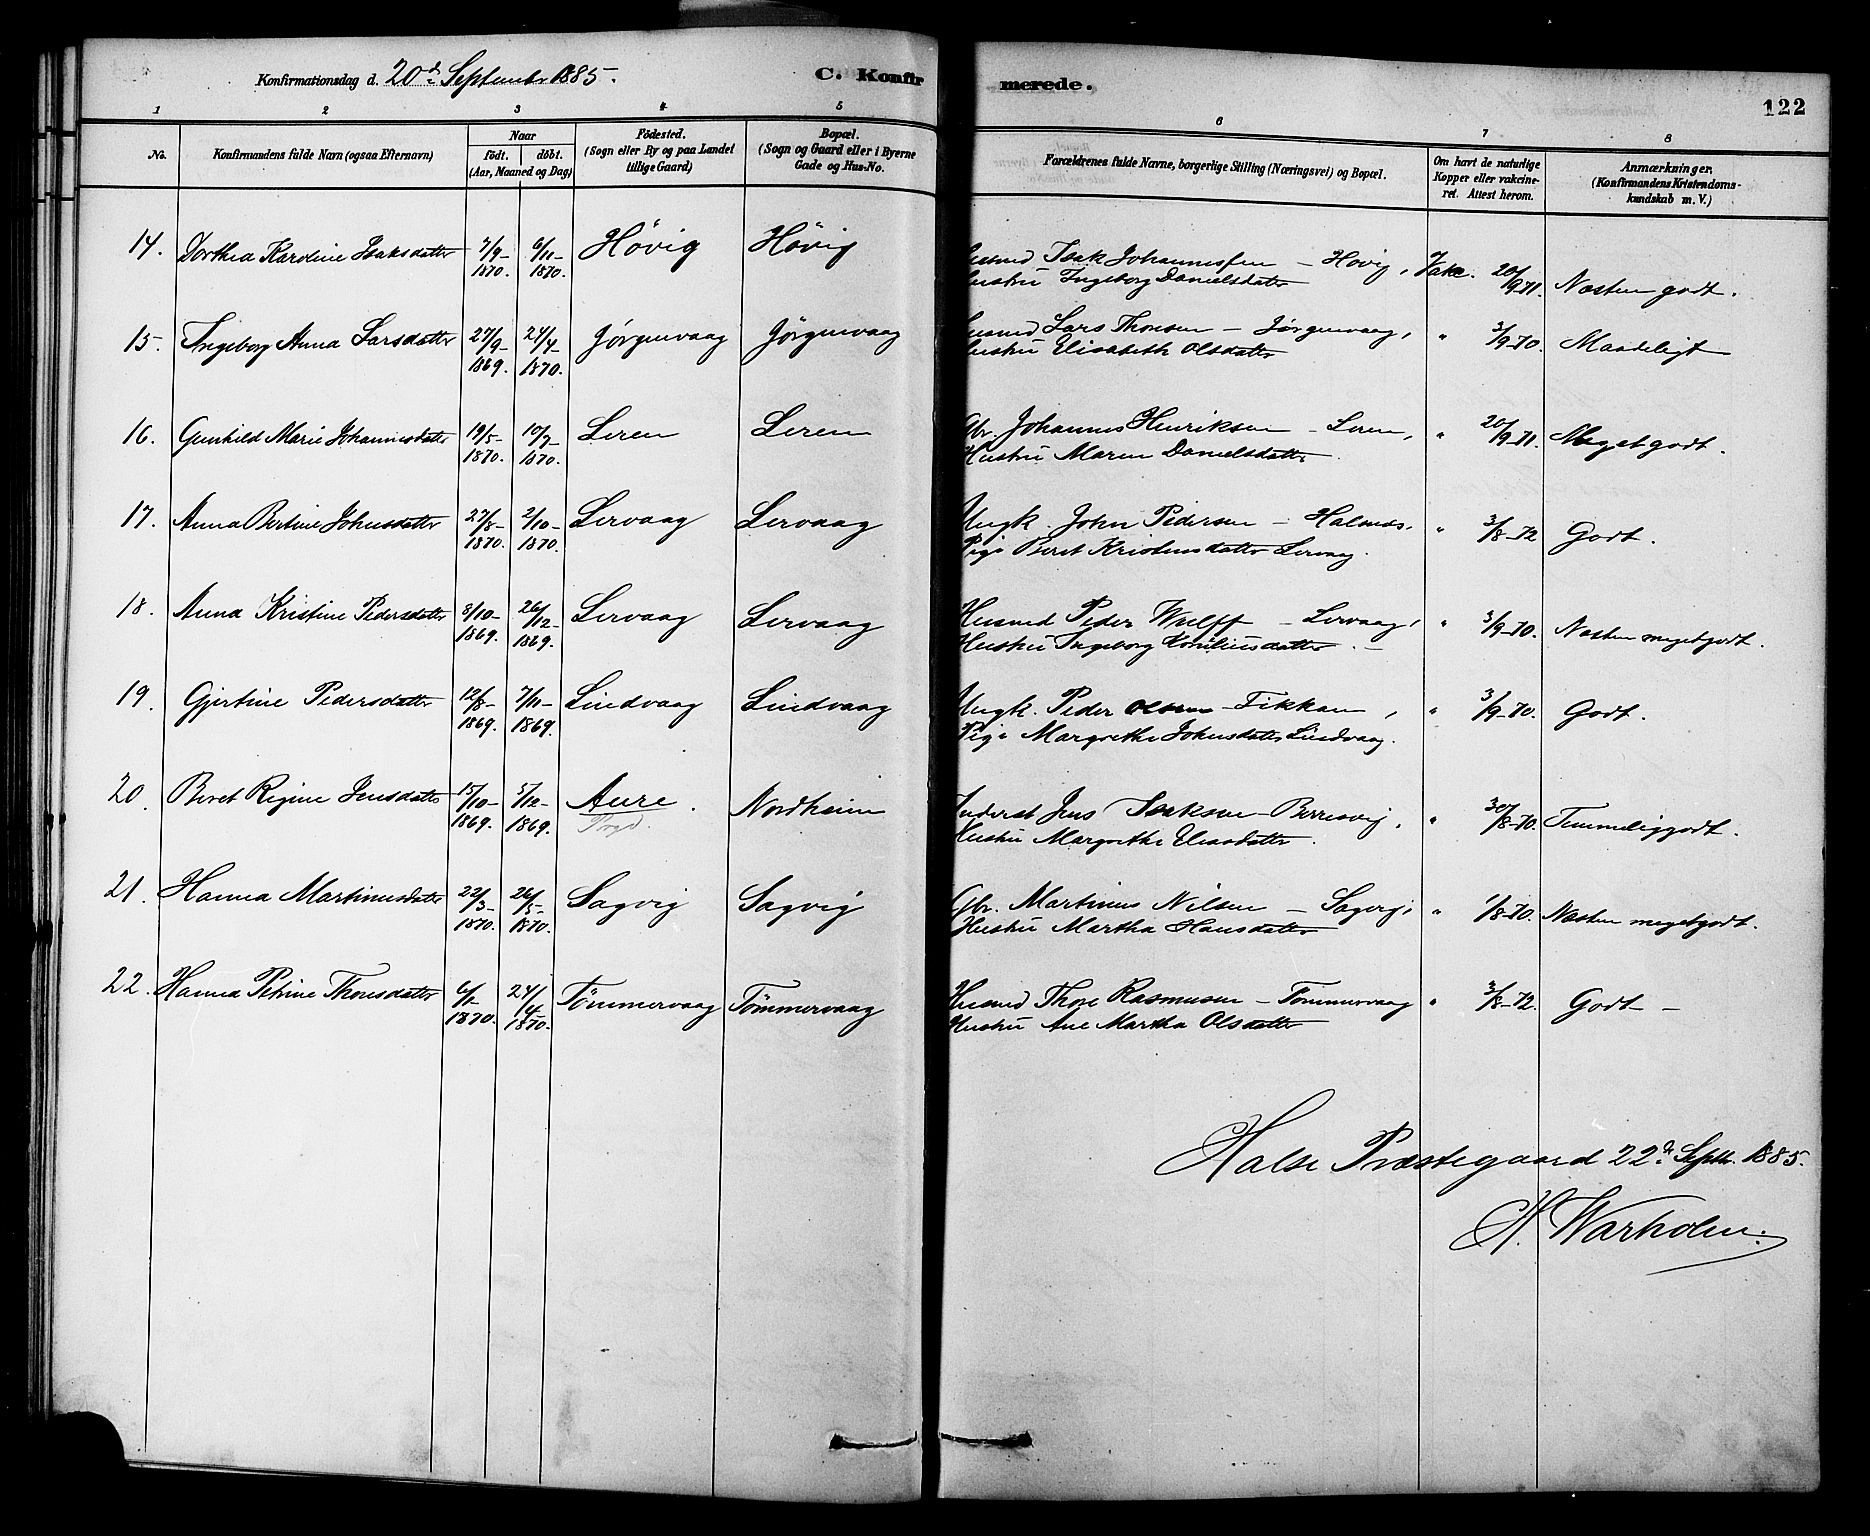 Konfirmationsdag d. 20de September 1885.
C. Konfirmerede.
122
1 2 3 4 5 6 7 8
No.
Konfirmandens fulde Navn (ogsaa Efternavn)
Naar
födt. döbt.
(Aar, Maaned og Dag)
Födested.
(Sogn eller By og paa Landet
tillige Gaard)
Bopæl.
(Sogn og Gaard eller i Byerne
Gade og Hus-No.
Forældrenes fulde Navne, borgerlige Stilling (Næringsvei) og Bopæl.
Om havt de naturlige
Kopper eller vakcine-
ret. Attest herom.
Anmærkninger,
(Konfirmandens Kristendoms-
kundskab m. V.)
14. Dorthea Karoline Isaksdatter 7/9-1870. 6/11-1870. Høvig Høvig Husmd Isak Johannessen - Høvig, Vakc. 20/9-71. Næsten godt.
Hustru Ingeborg Danielsdatter
15. Ingeborg Anna Larsdatter 27/9-1869. 24/4-1870. Jørgenvaag Jørgenvaag Husmd Lars Thoresen - Jørgenvaag, " 3/9-70. Maadeligt
Hustru Elisabeth Olsdatter
16. Gunhild Marie Johannesdatter 19/5-1870. 10/7-1870. Leren Leren Gbr. Johannes Henriksen - Leren, " 20/9-71. Meget godt.
Hustru Maren Danielsdatter.
17. Anna Bertine Johnsdatter 27/8-1870. 2/10-1870. Lervaag Lervaag Ungk. John Pedersen - Halsnes. " 3/8-72 Godt.
Pige Beret Kristensdatter Lervaag.
18. Anna Kristine Pedersdatter 8/10-1869. 26/12-1869. Lervaag Lervaag Husmd Peder Wulff - Lervaag, " 3/9-70. Næsten megetgodt.
Hustru Ingeborg Korneliusdatter. -
19. Gjertine Pedersdatter 12/8-1869. 7/11-1869. Lindvaag Lindvaag Ungk. Peder Olsen - Fikkan, " 3/9-70. Godt.
Pige Margrethe Johnsdatter Lindvaag.
20. Beret Regine Jensdatter 15/10-1869. 5/12-1869. Aure. Nordheim Inderst Jens Isaksen - Berresvig, " 30/8-70. Temmeliggodt.
Prgd. Hustru Margrethe Eliasdatter.
21. Hanna Martinusdatter 22/3-1870. 26/5-1870. Sagvig Sagvig Gbr. Martinus Nilsen - Sagvig, " 1/8-70. Næsten megetgodt.
Hustru Martha Hansdatter
22. Hanna Petrine Thoresdatter 6/2 1870. 24/4-1870. Tömmervaag Tömmervaag Husmd Thore Rasmusen - Tömmervaag " 3/8-72. Godt -
Hustru Ane Martha Olsdatter
Halse Præstegaard 22de Septbr. 1885.
H. Warholm.